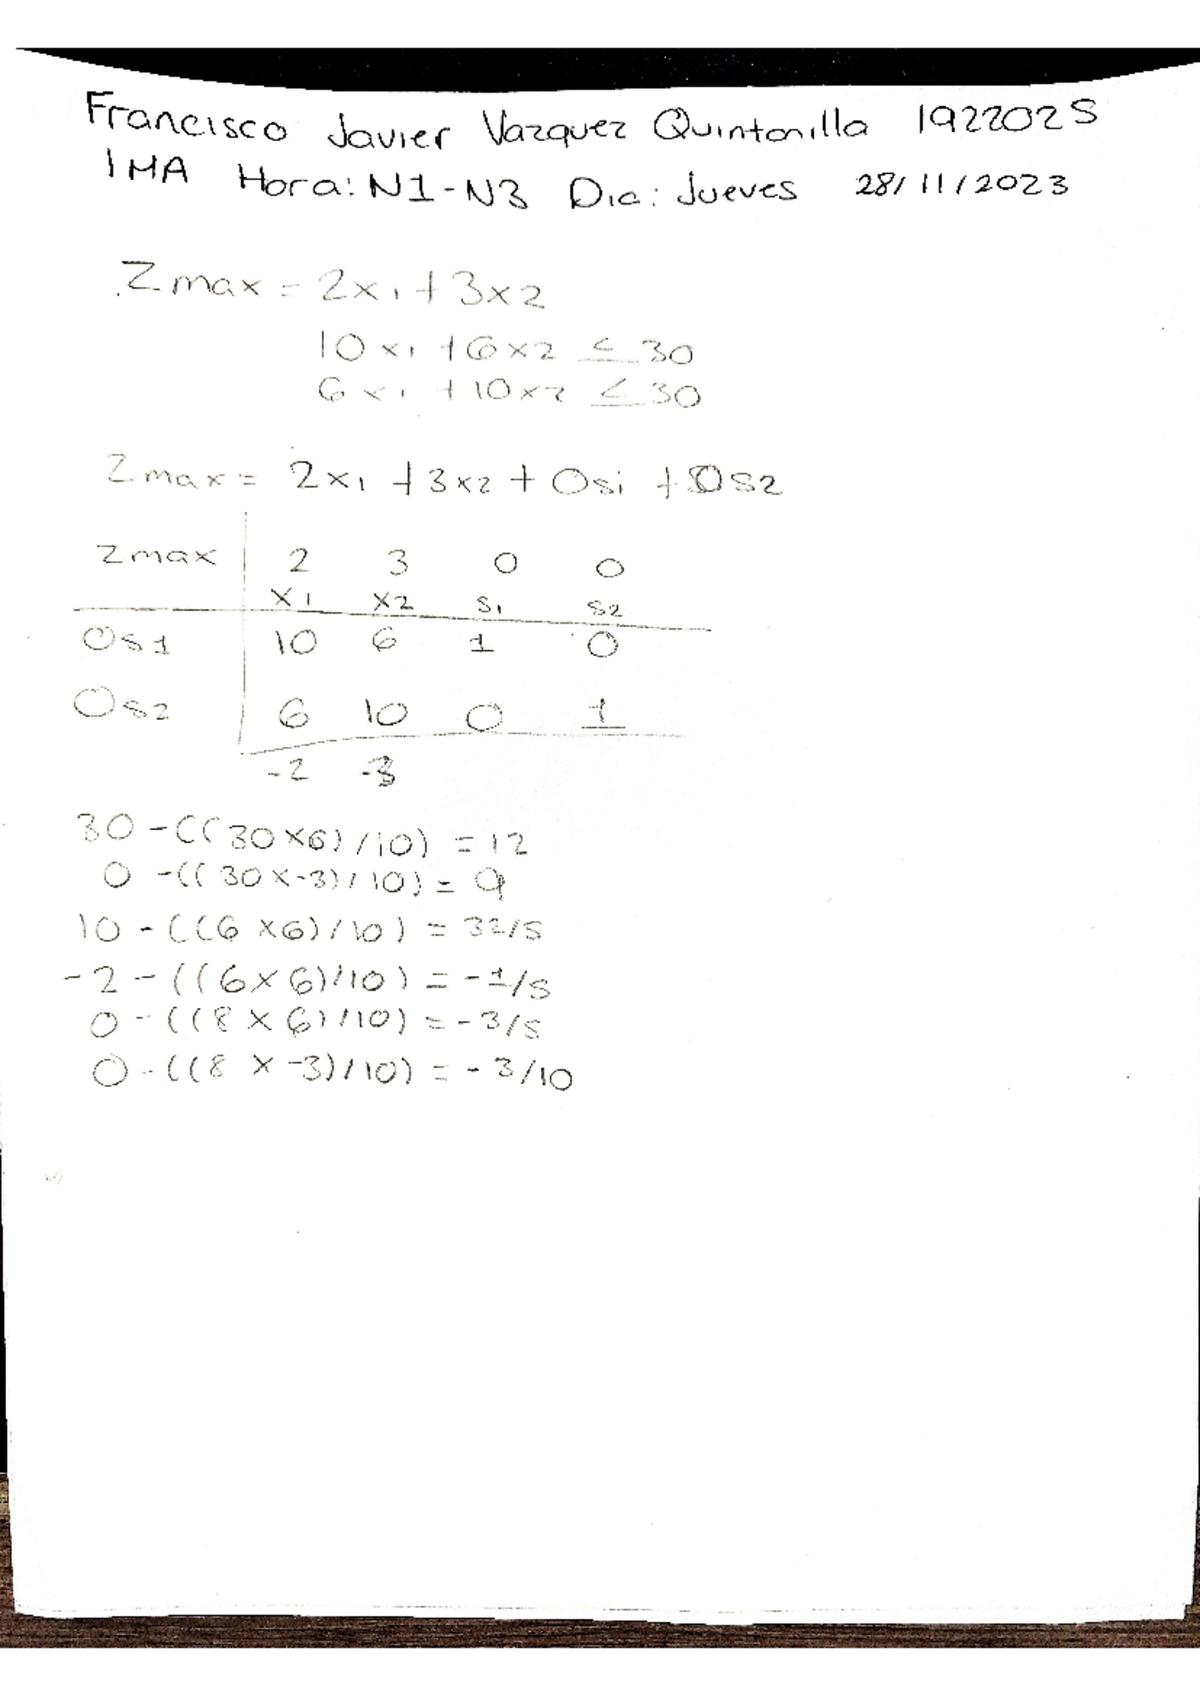 Francisco Javier Vazquez Quintanilla 1922025
IMA Hora: N1-N3 Dia: Jueves 28/11/2023
Zmax = 2x1 + 3x2
10x1 + 6x2 ≤ 30
6x1 + 10x2 ≤ 30
Zmax = 2x1 + 3x2 + 0s1 + 0s2
Zmax 2 3 0 0
x1 x2 s1 s2
0s1 10 6 1 0
0s2 6 10 0 1
-2 -3
30 - ((30x6)/10) = 12
0 - ((30x-3)/10) = 9
10 - ((6x6)/10) = 32/5
-2 - ((6x6)/10) = -1/5
0 - ((8x6)/10) = -3/5
0 - ((8x-3)/10) = -3/10